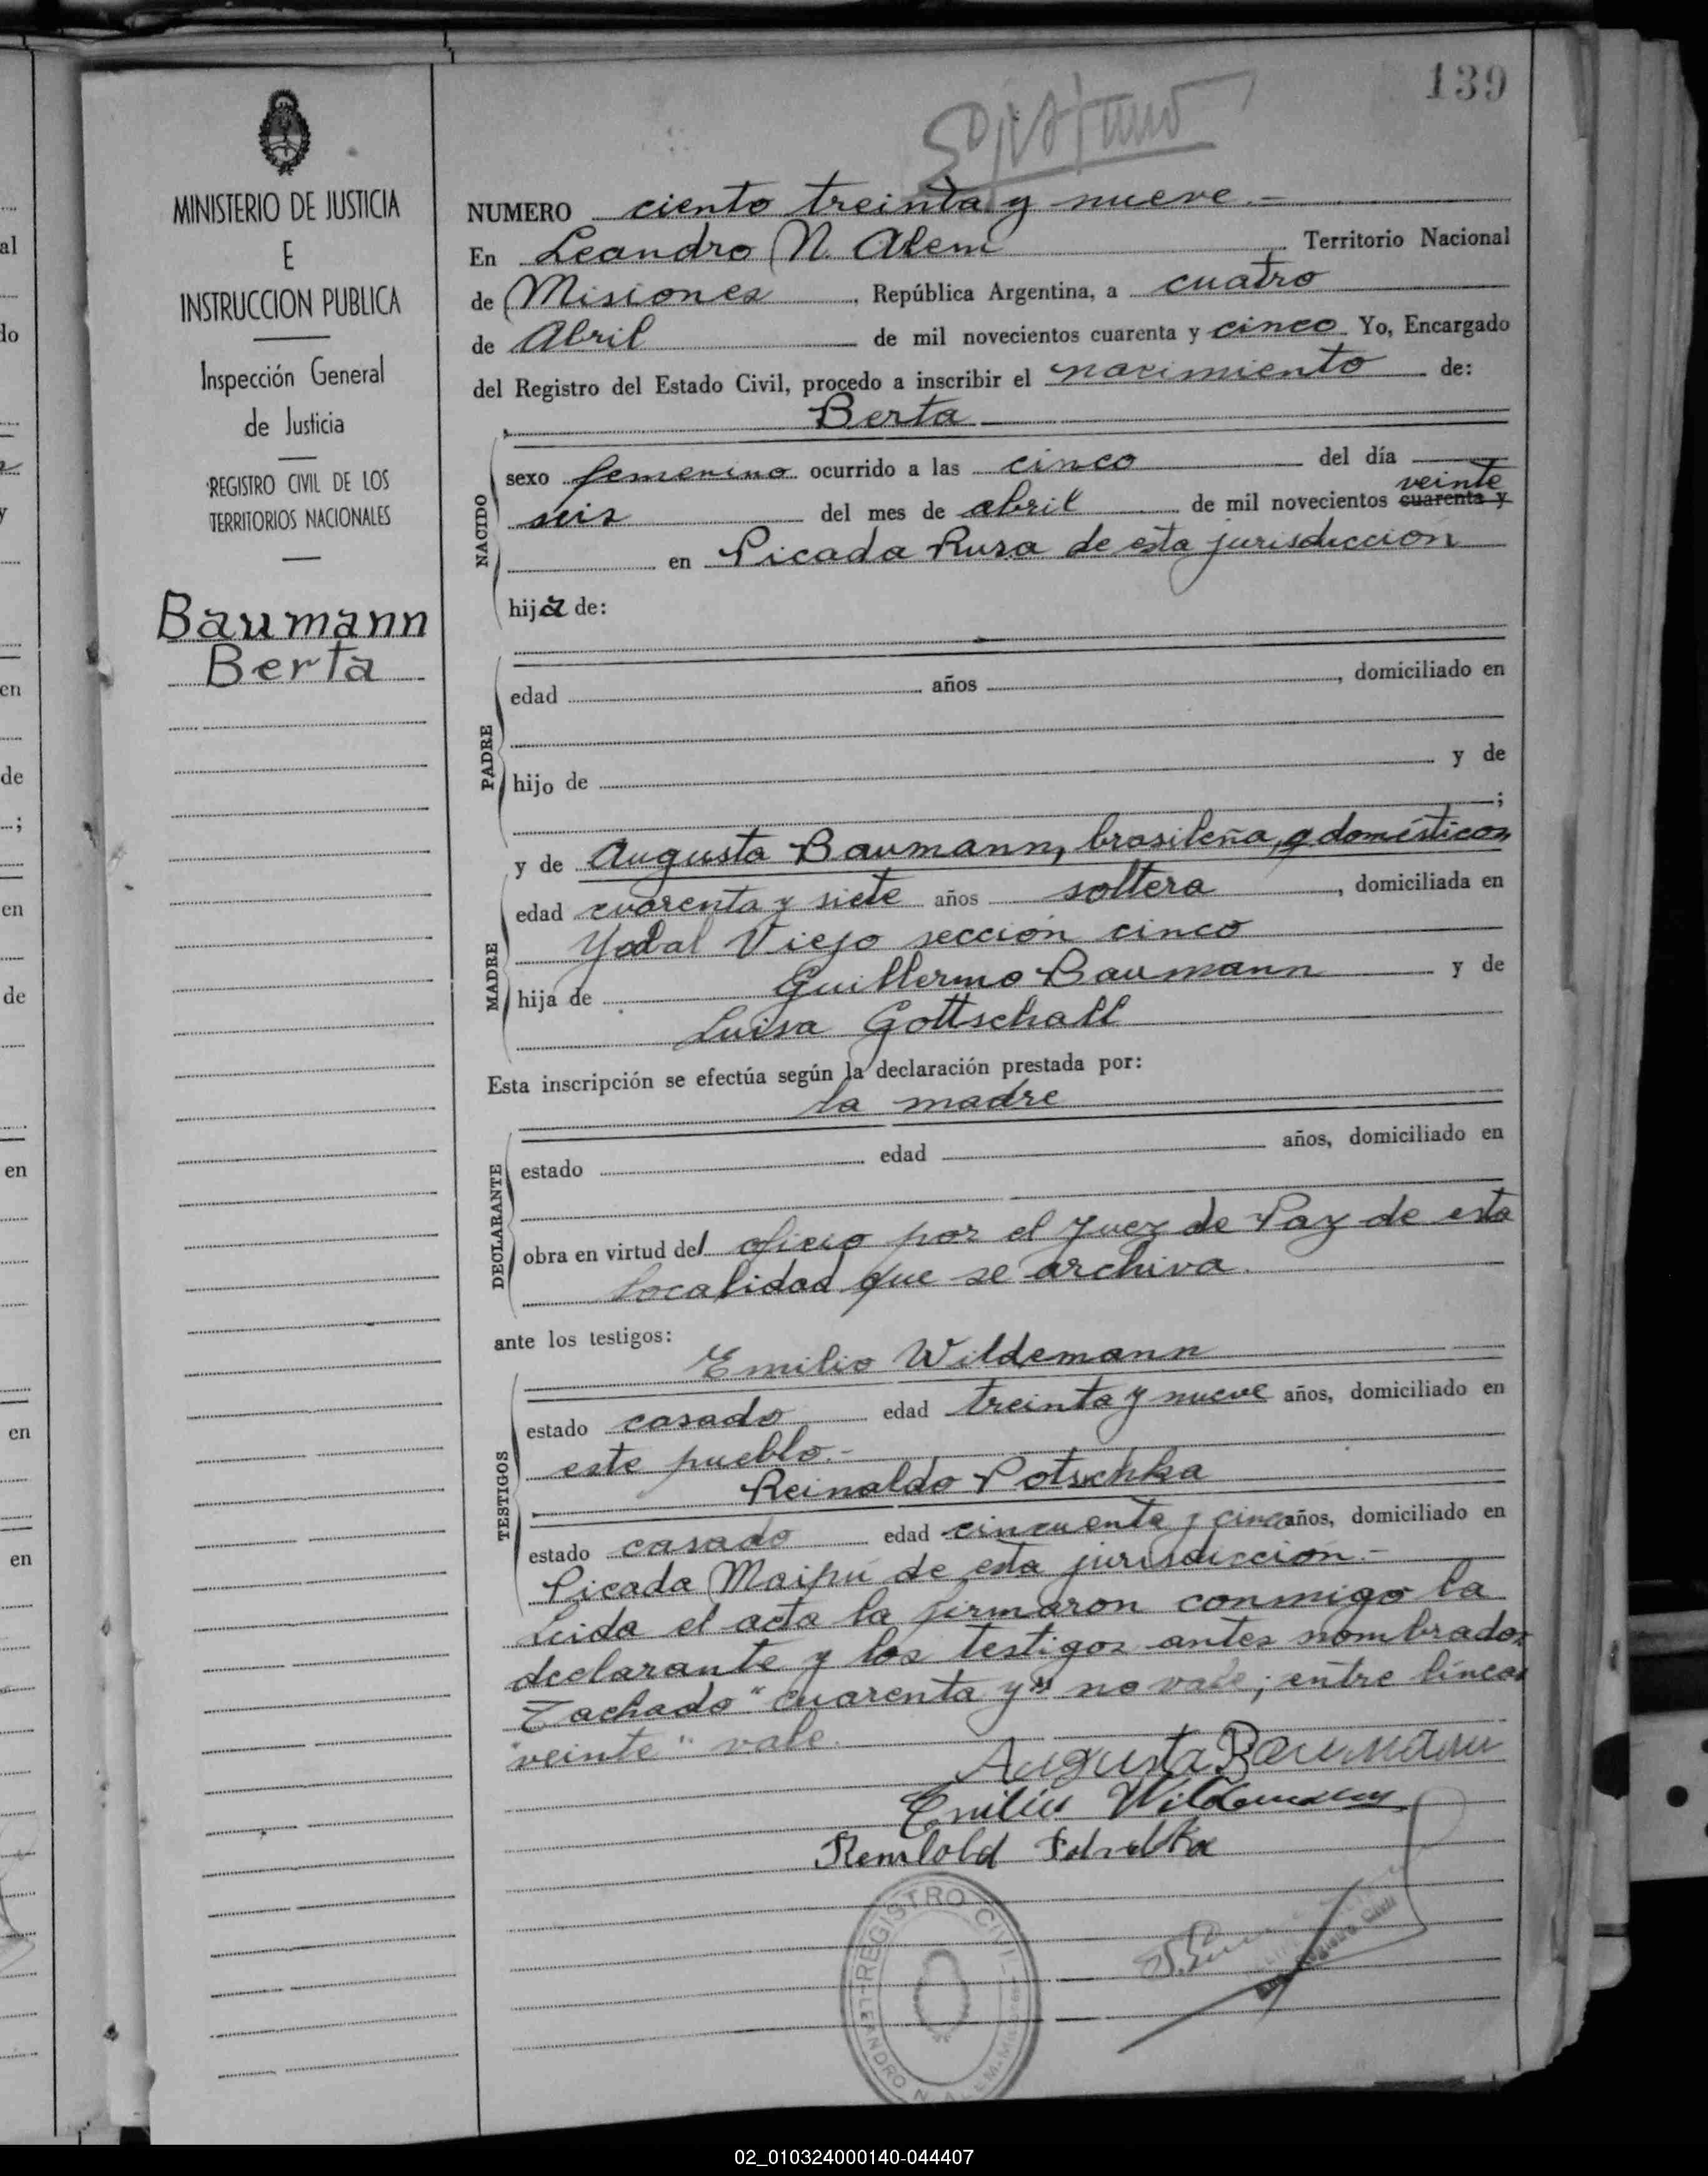 139
MINISTERIO DE JUSTICIA
E
INSTRUCCION PUBLICA
Inspección General
de Justicia
REGISTRO CIVIL DE LOS
TERRITORIOS NACIONALES
Baumann
Berta
NUMERO ciento treinta y nueve.-
En Leandro N. Alem Territorio Nacional
de Misiones, República Argentina, a cuatro
de Abril de mil novecientos cuarenta y cinco Yo, Encargado
del Registro del Estado Civil, procedo a inscribir el nacimiento de:
Berta
NACIDO
sexo femenino ocurrido a las cinco del día
veinte
seis del mes de abril de mil novecientos cuarenta y
en Picada Rusa de esta jurisdicción
hija de:
PADRE
edad años , domiciliado en
hijo de y de
;
MADRE
y de Augusta Baumann, brasileña, q domésticos,
edad cuarenta y siete años soltera , domiciliada en
Yerbal Viejo sección cinco
hija de Guillermo Baumann y de
Luisa Gottschall
Esta inscripción se efectúa según la declaración prestada por:
la madre
DECLARANTE
estado edad años, domiciliado en
obra en virtud del oficio por el Juez de Paz de esta
localidad que se archiva.
ante los testigos:
Emilio Wildemann
TESTIGOS
estado casado edad treinta y nueve años, domiciliado en
este pueblo.-
Reinaldo Potschka
estado casado edad cincuenta y cinco años, domiciliado en
Picada Maipú de esta jurisdicción.-
Leida el acta la firmaron conmigo la
declarante y los testigos antes nombrados
Tachado "cuarenta y" no vale; entre líneas
"veinte" vale.
Augusta Baumann
Emilio Wildemann
REGISTRO CIVIL
LEANDRO N. ALEM-Misiones
02_010324000140-044407